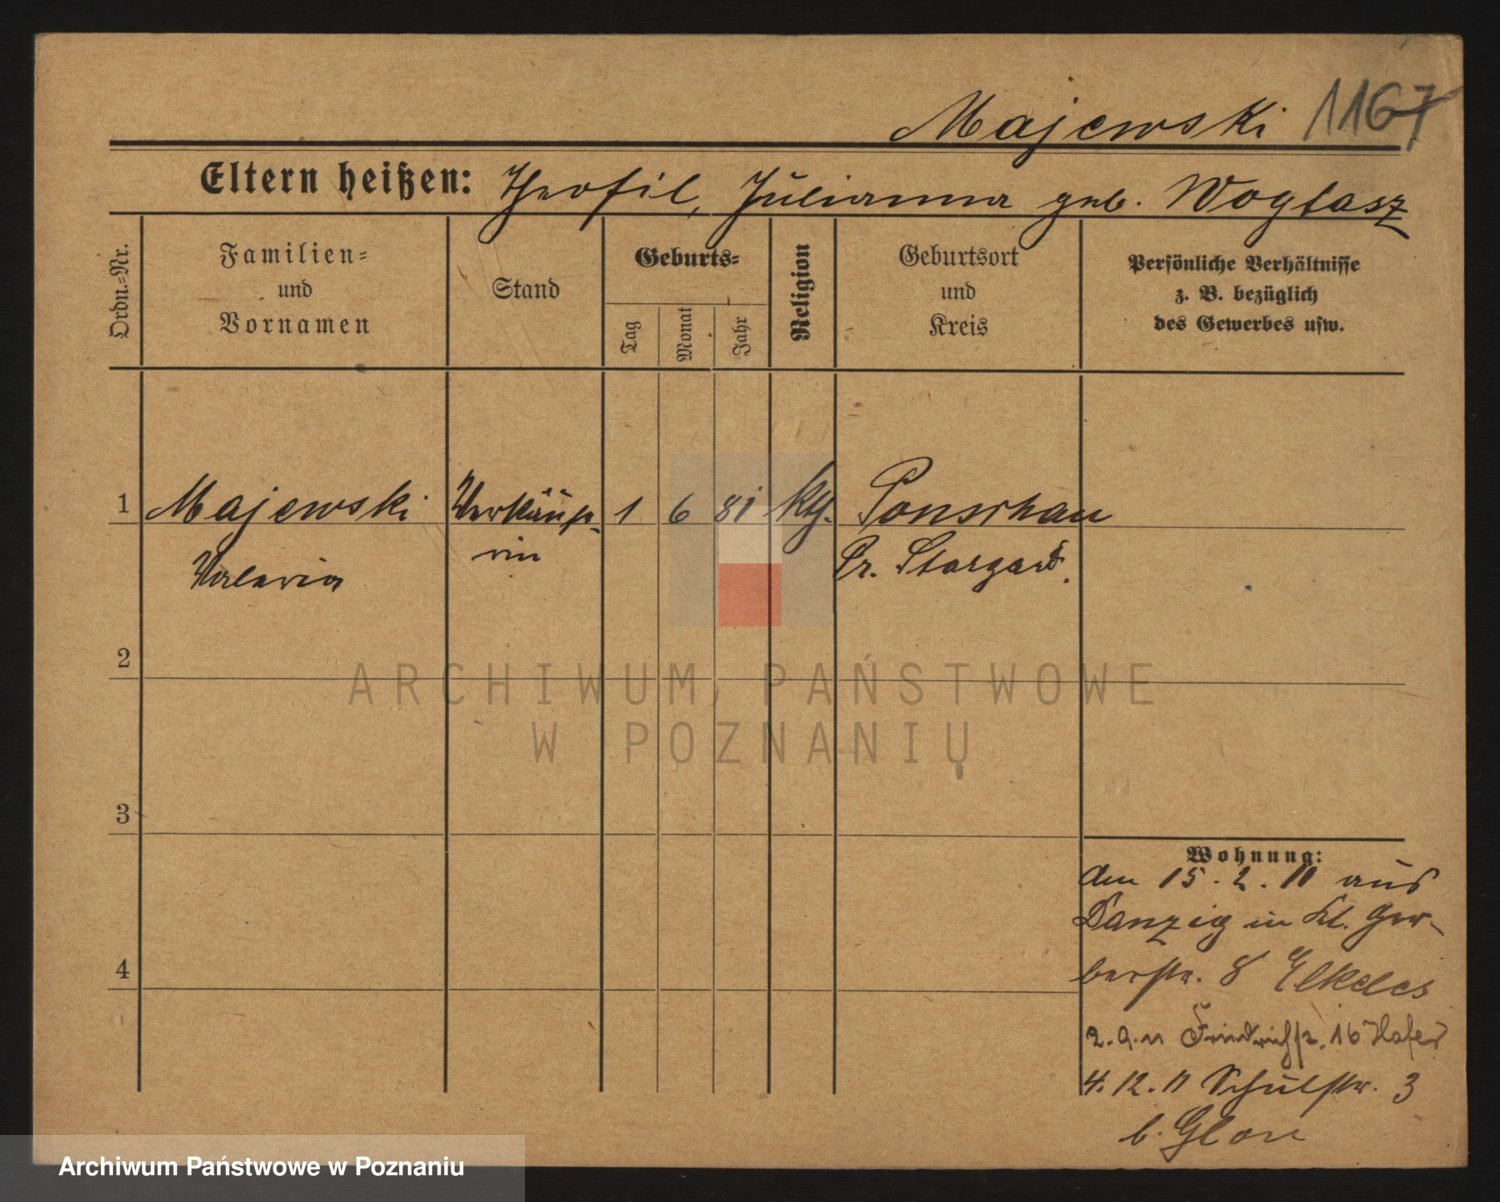 Majewski 1167
Eltern heißen: Theofil, Julianna geb. Wogtasz
Ordn.-Nr.
Familien-
und
Vornamen
Stand
Geburts-
Tag
Monat
Jahr
Religion
Geburtsort
und
Kreis
Persönliche Verhältnisse
z. B. bezüglich
des Gewerbes usw.
1 Majewski Verkäufe- 1 6 81 kth. Ponschau
Valeria rin Pr. Stargard.
2
3
4
Wohnung:
den 15.2.11 aus
Danzig in Kl. Ger-
berstr. 8 Elkeles
2.9.11 Friedrichstr. 16 Hafer
4.12.11 Schulstr. 3
b. Glou
ARCHIWUM PAŃSTWOWE
W POZNANIU
Archiwum Państwowe w Poznaniu